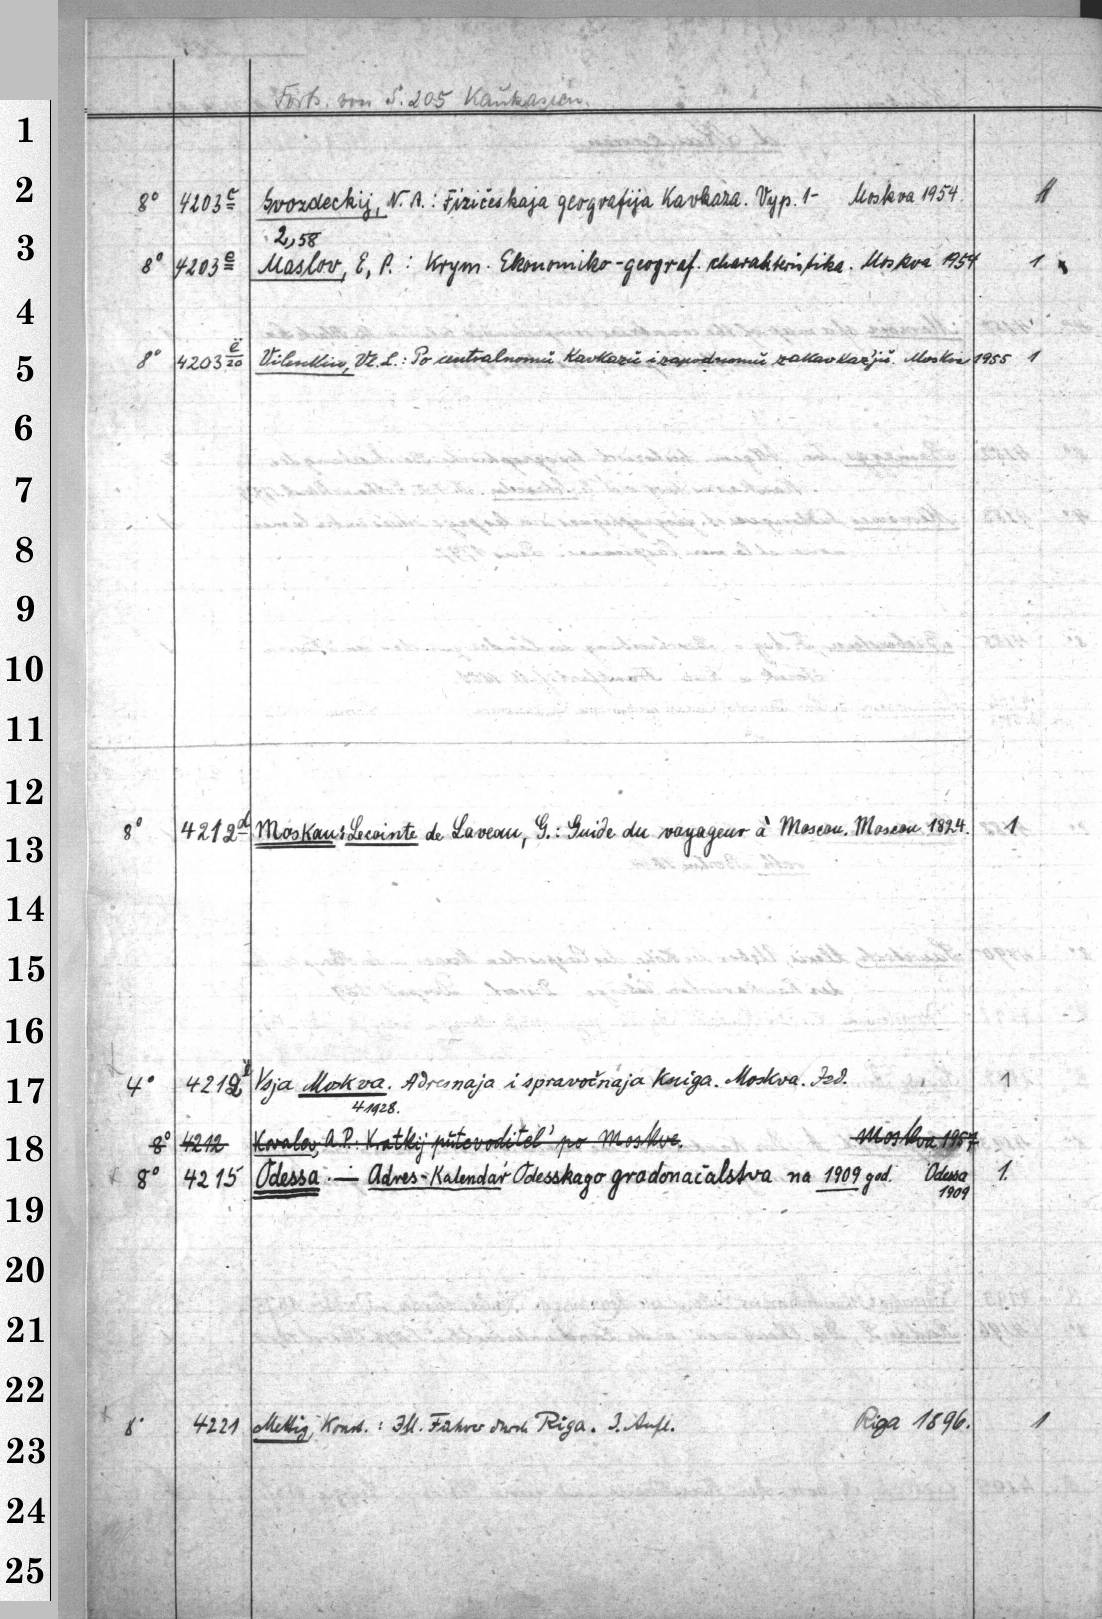 Forts. von S. 205 Kaukasien.
1
2
8° 4203 c Gvozdeckij, N. A.: Fizičeskaja geografija Kavkaza. Vyp. 1- Moskva 1954. 1
2,58
3
8° 4203 e Maslov, E. P.: Krym. Ekonomiko-geograf. charakteristika. Moskva 1954 1
4
8° 4203 e/20 Vilenkin, Vl. L.: Po centralnomu Kavkazu i zapadnomu zakavkaz'ju. Moskva 1955 1
5
6
7
8
9
10
11
12
8° 4212 d Moskau: Lecointe de Laveau, G.: Guide du voyageur à Moscou. Moscou 1824. 1
13
14
15
16
4° 4212 Vsja Moskva. Adresnaja i spravočnaja Kniga. Moskva. Izd. 1
17
4 1928.
8° 4212 Kovalev, A. P.: Kratkij putevoditel' po Moskve. Moskva 1957
18
8° 4215 Odessa. — Adres-Kalendaŕ Odesskago gradonačalstva na 1909 god. Odessa 1.
1909
19
20
21
22
8° 4221 Mettig, Konst.: Ill. Führer durch Riga. 3. Aufl. Riga 1896. 1
23
24
25